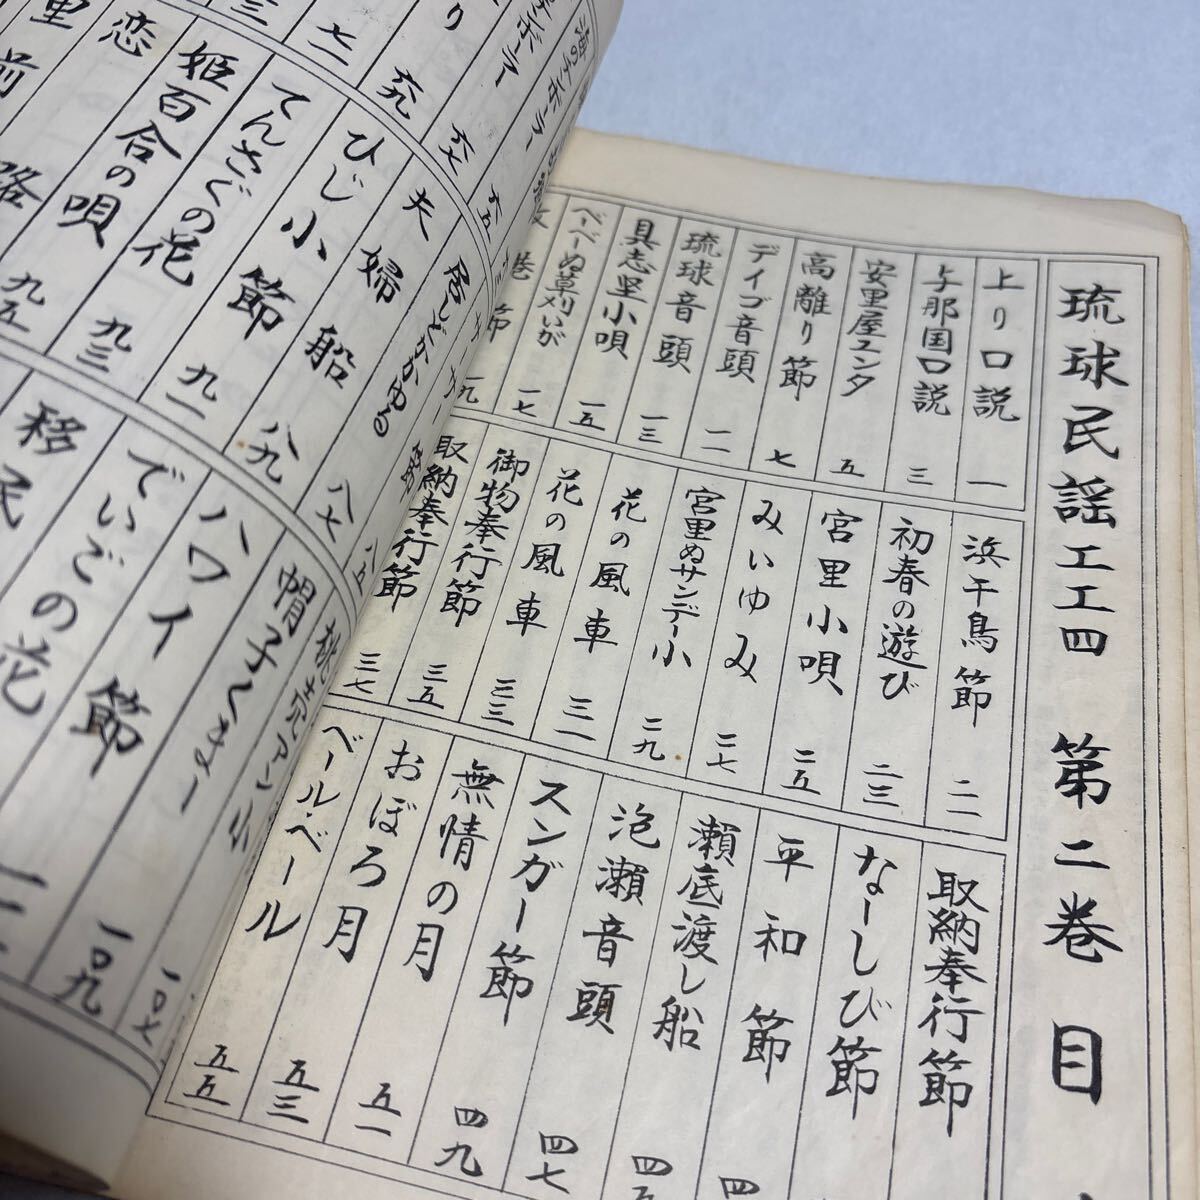 琉球民謡工工四 第二巻 目
上り口説 一
与那国口説 三
安里屋ユンタ 五
高離り節 七
デイゴ音頭
琉球音頭 一一
具志堅小唄 一三
べーべーぬ草刈いが 一五
巻節 一七
一九
浜千鳥節 二一
初春の遊び 二三
宮里小唄 二五
みいゆみ 二七
宮里ぬサンデー小 二九
花の風車 三一
花の風車 三三
御物奉行節 三五
取納奉行節 三七
取納奉行節
なーしび節
平和節 四
瀬底渡し船 四五
泡瀬音頭 四七
スンガー節 四九
無情の月 五一
おぼろ月 五三
ベールベール 五五
海のチンボーラー 六五
チンボーラー 六七
り 六九
七一
三
夫婦船 八七
ひじ小節 八九
てんさぐの花 九一
姫百合の唄 九三
恋 路 九五
里前
居しどかかゆる 八五
桃売アン小
帽子くまー 一〇七
ハワイ節 一〇九
でいごの花 一一
移民